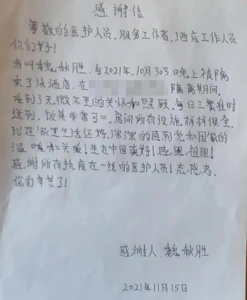 感谢信
尊敬的医护人员,服务工作者,酒店工作人员
你们辛苦了!
我叫魏秋胜,与2021年,10月30日晚上被隔离
来了该酒店,在 隔离期间,
受到了无微不至的关怀和照顾,每日三餐准时
送到,饭菜非常可口,房间所有设施,样样俱全
比在家里生活还好,深深的感到党和国家的
温暖和关爱!生在中国真好!感恩祖国!
感谢所有抗疫在一线的医护人员!志愿者,
你们辛苦了!
感谢人 魏秋胜
2021年11月15日